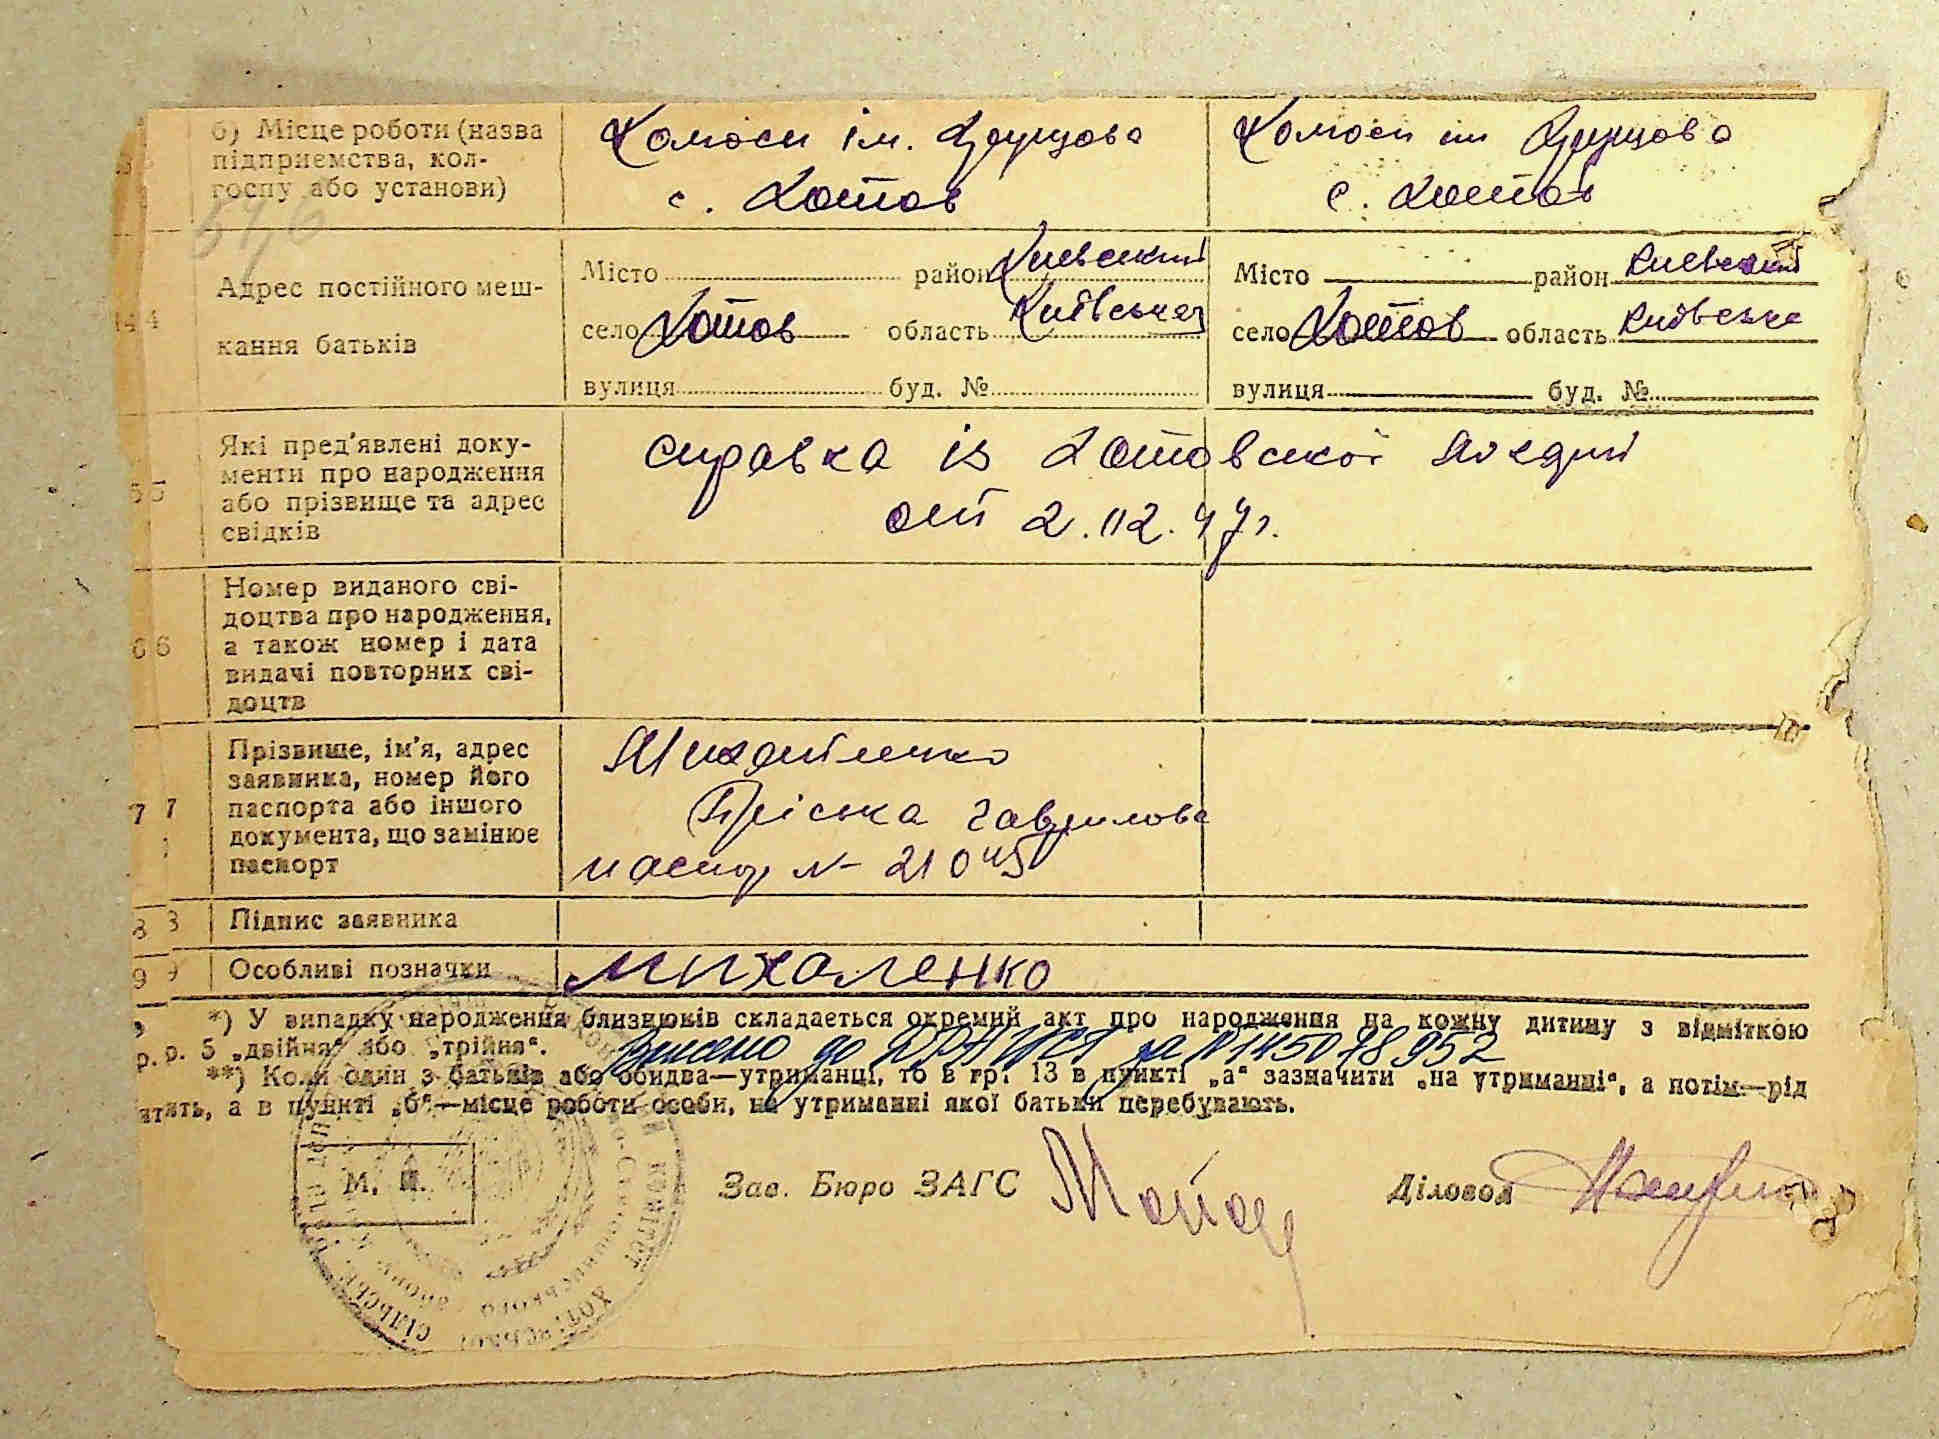 б) Місце роботи (назва
підприємства, кол-
госпу або установи)
ім.
с. Хотов
с. Хотов
51,6
4 Адрес постійного меш-
кання батьків
Місто район Киевский
село Хотов область Київська
вулиця буд. №
Місто район Киевский
село Хотов область Київська
вулиця буд. №
5 Які пред'явлені доку-
менти про народження
або прізвище та адрес
свідків
справка із Хотовської
от 2.02.47г.
6 Номер виданого сві-
доцтва про народження,
а також номер і дата
видачі повторних сві-
доцтв
7 Прізвище, ім'я, адрес
заявника, номер його
паспорта або іншого
документа, що замінює
паспорт
Михайленко
Пріська Гаврилова
паспор № 21045
8 Підпис заявника
9 Особливі позначки
михаленко
*) У випадку народження близнюків складається окремий акт про народження на кожну дитину з відміткою
р. 5 „двійня“ або „трійня“.
Внесено до ДРАЦСГ за №145078952
**) Коли один з батьків або обидва—утриманці, то в гр. 13 в пункті „а“ зазначити „на утриманні“, а потім—рід
а в пункті „б“—місце роботи особи, на утриманні якої батьки перебувають.
М. П.
Зав. Бюро ЗАГС
Діловод